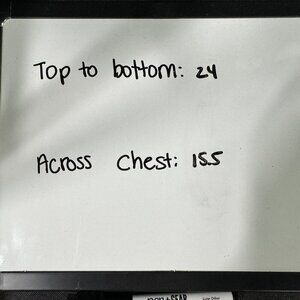 Top to bottom: 24
Across Chest: 15.5